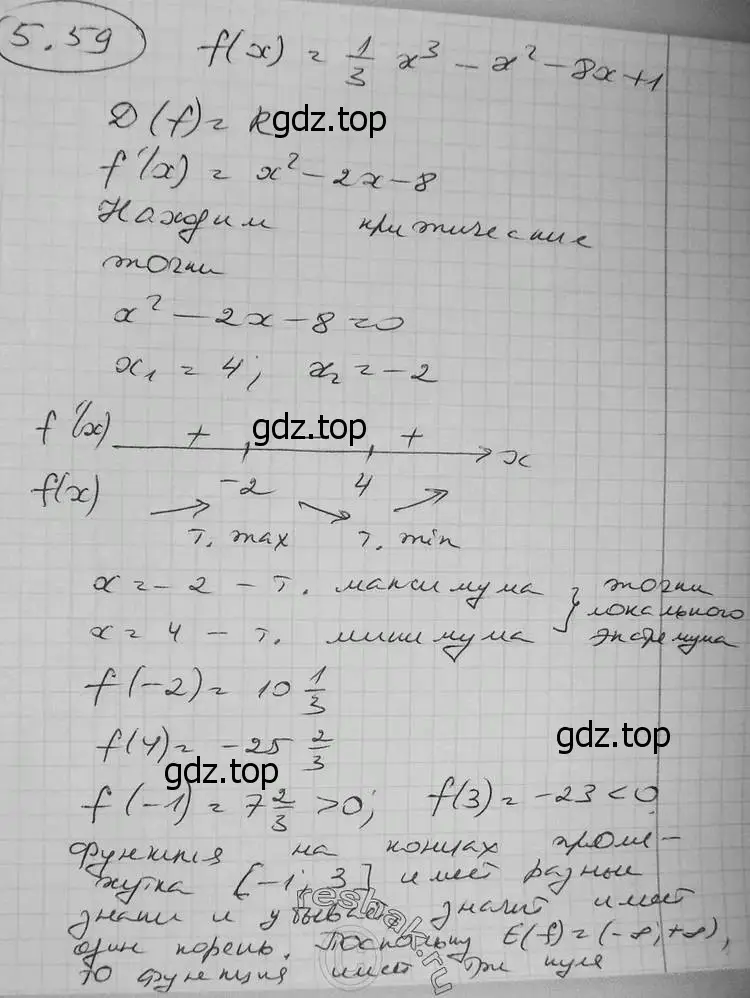 5.59
f(x) = 1/3 x³ - x² - 8x + 1
D(f) = R
gdz.top
f'(x) = x² - 2x - 8
Находим критические
точки
x² - 2x - 8 = 0
x₁ = 4; x₂ = -2
f'(x) + gdz.top + x
f(x) -2 4
т. max т. min
x = -2 - т. максимума } точки
локального
x = 4 - т. минимума экстремума
f(-2) = 10 1/3
f(4) = -25 2/3
gdz.top
gdz.top
f(-1) = 7 2/3 > 0; f(3) = -23 < 0
Функция на концах проме-
жутка [-1; 3] имеет разные
знаки и убывает, значит имеет
один корень. Поскольку E(f) = (-∞; +∞),
то функция имеет три нуля
reshak.ru